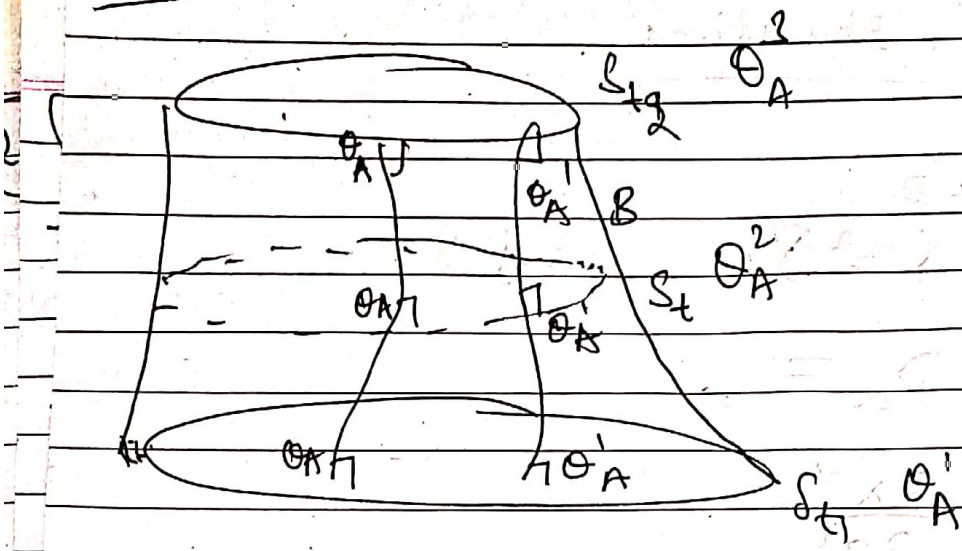 S_{t_2} θ_A^3
θ_A θ_A^1 B
S_t θ_A^2
θ_A θ_A^1
θ_A θ_A^1
S_{t_1} θ_A^1